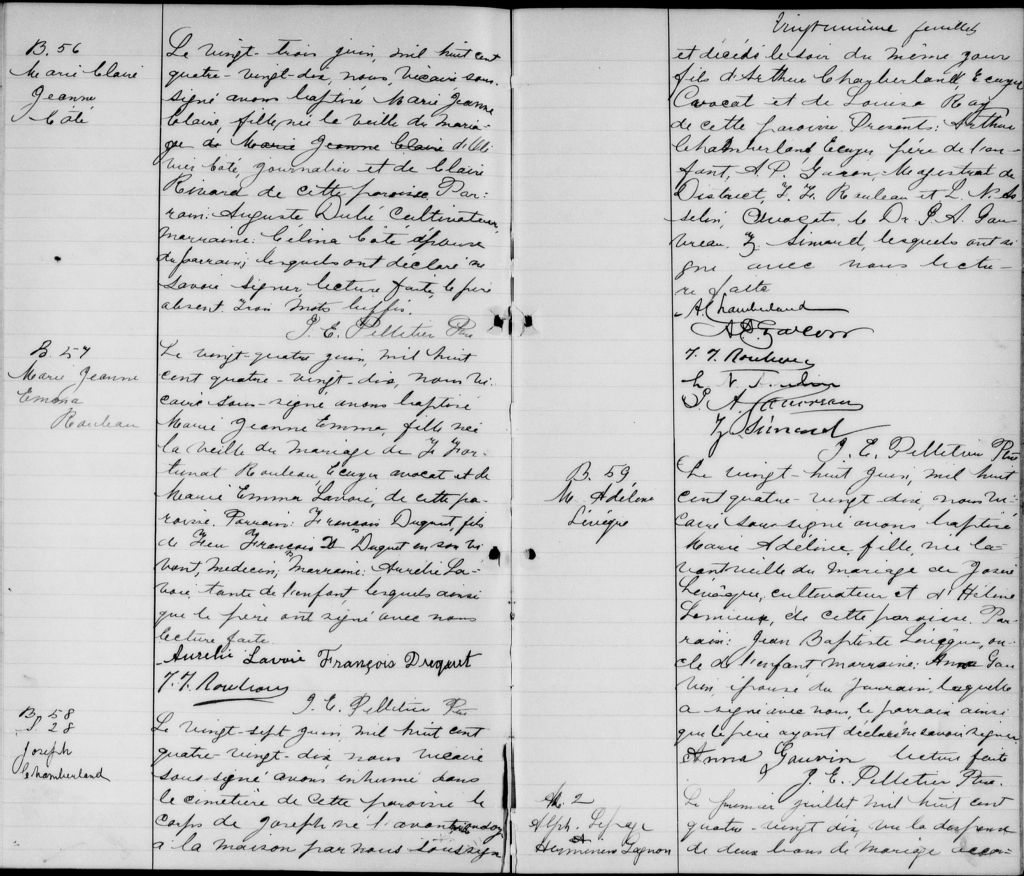 B. 56
Marie Claire
Jeanne
Côté
Le vingt-trois juin, mil huit cent
quatre-vingt-dix, nous, vicaire sous-
signé avons baptisé Marie Jeanne
Claire, fille, née la veille du maria-
ge de Marie Jeanne Claire d'Oli-
vier Côté, journalier et de Claire
Rivard de cette paroisse. Par-
rain: Auguste Dubé Cultivateur,
marraine: Célina Côté épouse
du parrain; lesquels ont déclaré ne
savoir signer lecture faite, le père
absent. Trois mots biffés.
J. E. Pelletier Ptre
B. 57
Marie Jeanne
Emma
Rouleau
Le vingt-quatre juin, mil huit
cent quatre-vingt-dix, nous vi-
caire sous-signé avons baptisé
Marie Jeanne Emma, fille née
la veille du mariage de F. For-
tunat Rouleau, Ecuyer avocat et de
Marie Emma Lavoie, de cette pa-
roisse. Parrain: François Duguet, fils
de Feu François Duguet en son vi-
vant, Medecin, Marraine: Aurélie La-
voie, tante de l'enfant lesquels ainsi
que le père ont signé avec nous
lecture faite.
Aurelie Lavoie François Duguet
F. F. Rouleau
J. E. Pelletier Ptre
B. 58
S. 28
Joseph
Chamberland
Le vingt-sept juin, mil huit cent
quatre-vingt-dix, nous vicaire
sous-signé avons inhumé dans
le cimetière de cette paroisse le
corps de Joseph né l'avant
à la maison par nous soussigné
Vingtunième feuillet
et décédé le soir du même jour
fils d'Arthur Chamberland, Ecuyer
Avocat et de Louisa Ray
de cette paroisse. Présents: Arthur
Chamberland Ecuyer, père de l'en-
fant, A. P. Garon, Magistrat de
District, F. F. Rouleau et L. N. As-
selin, Avocats, le Dr P. A. Gau-
vreau, Z. Simard, lesquels ont si-
gné avec nous lectu-
re faite
A. Chamberland
A. P. Garon
F. F. Rouleau
L. N. Asselin
P. A. Gauvreau
Z. Simard
J. E. Pelletier Ptre
B. 59
M. Adéline
Lévêque
Le vingt-huit juin, mil huit
cent quatre-vingt dix, nous vi-
caire sous-signé avons baptisé
Marie Adéline, fille, née l'a-
vant veille du mariage de Josué
Lévêque, cultivateur et d'Hélène
Lemieux, de cette paroisse. Par-
rain: Jean Baptiste Lévêque, on-
cle de l'enfant marraine: Anna Gau-
vin, épouse du parrain, laquelle
a signé avec nous, le parrain ainsi
que le père ayant déclaré ne savoir signer
Anna Gauvin lecture faite
J. E. Pelletier Ptre.
M. 2
Alph. Lepage
Herménie Gagnon
Le premier juillet mil huit cent
quatre-vingt dix, vu la dispense
de deux bans de mariage accor-